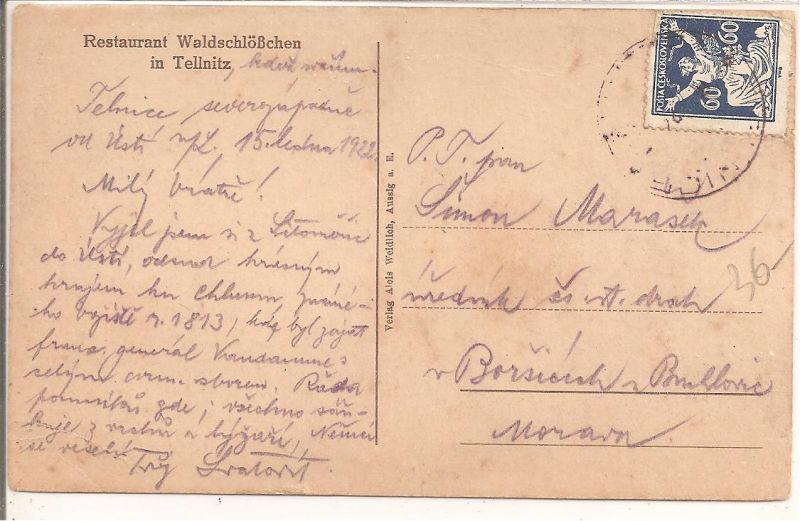 Restaurant Waldschlößchen
in Tellnitz, když
Telnice severozápadně
od Ústí n/L. 15. ledna 1922.
Milý bratře!
Vyjel jsem si z Litoměřic
do Ústí, odsud krásným
krajem ku Chlumu, známé-
ho bojiště r. 1813, kde byl zajat
franc. generál Vandamme s
celým svým sborem. Řada
pomníků zde; všechno sáň-
kuje z vrchů a lyžaří, Němci
se veselí. Tvůj
Verlag Alois Weidlich, Aussig a. E.
POŠTA ČESKOSLOVENSKÁ
60 60
P. T. pan
Šimon Marasek
úředník čs. st. drah
v Boršicích u Buchlovic
Morava
36